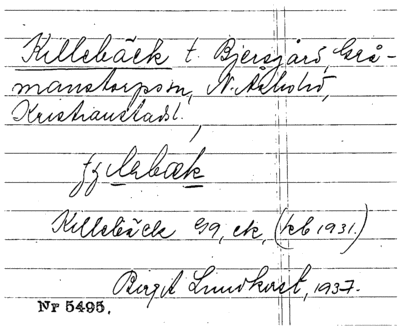 Killebäck t. Bjersgård, Grå-
manstorps sn, N. Åsbo hd,
Kristianstads l.
Killebäck Gg, ek, (kb 1931.)
Birgit Lundkvist, 1937.
Nr 5495.